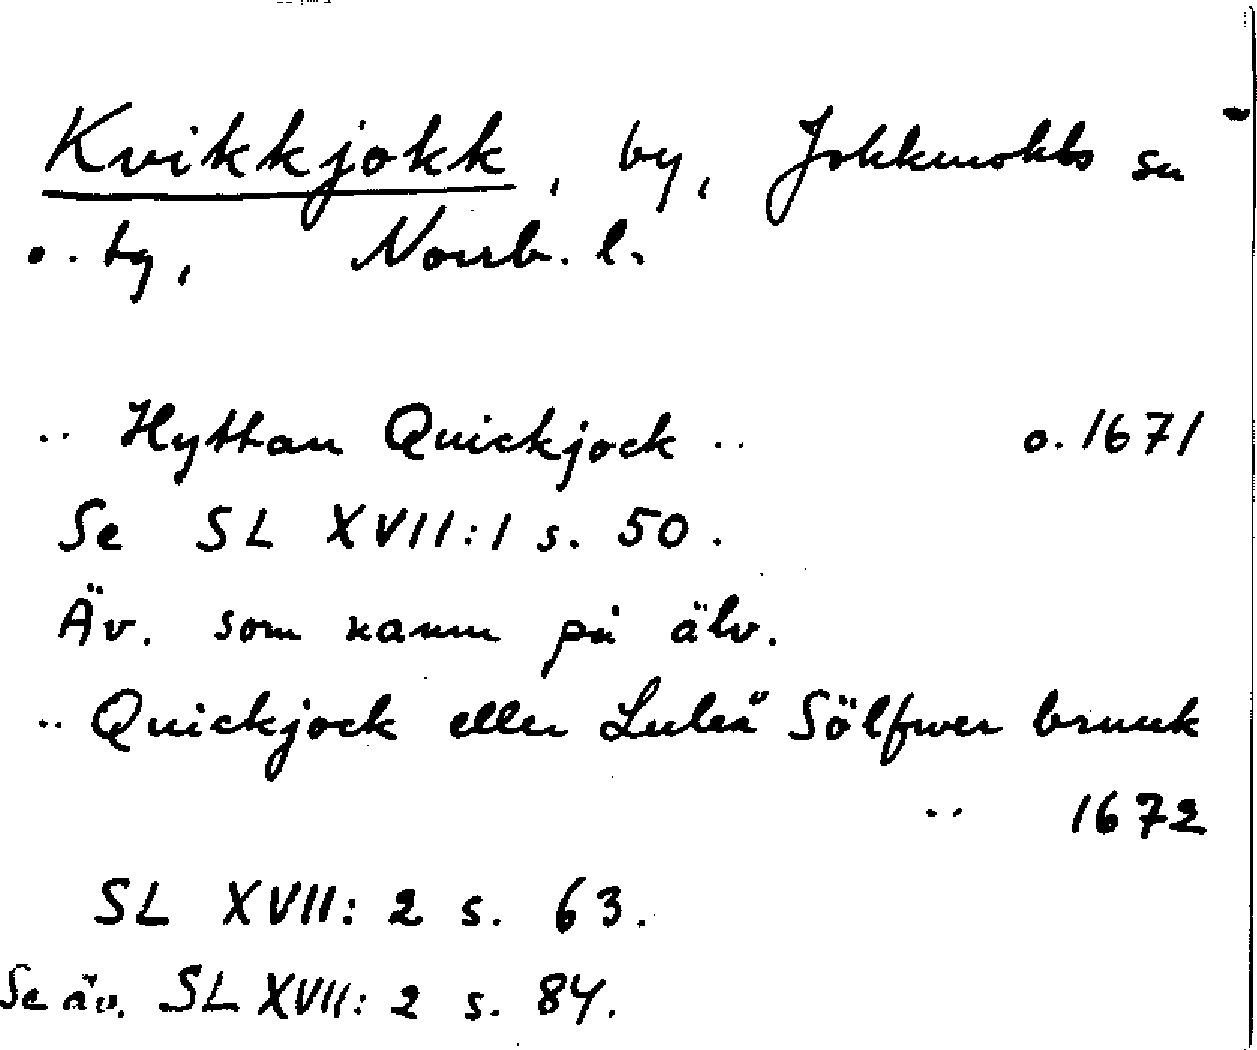 Kvikkjokk, by, Jokkmokks sn
o. tg, Norrb. l.
.. Hyttan Quickjock .. o. 1671
Se SL XVII:1 s. 50.
Äv. som namn på älv.
.. Quickjock eller Luleå Sölfwer bruuk
.. 1672
SL XVII: 2 s. 63.
Se äv. SL XVII: 2 s. 84.